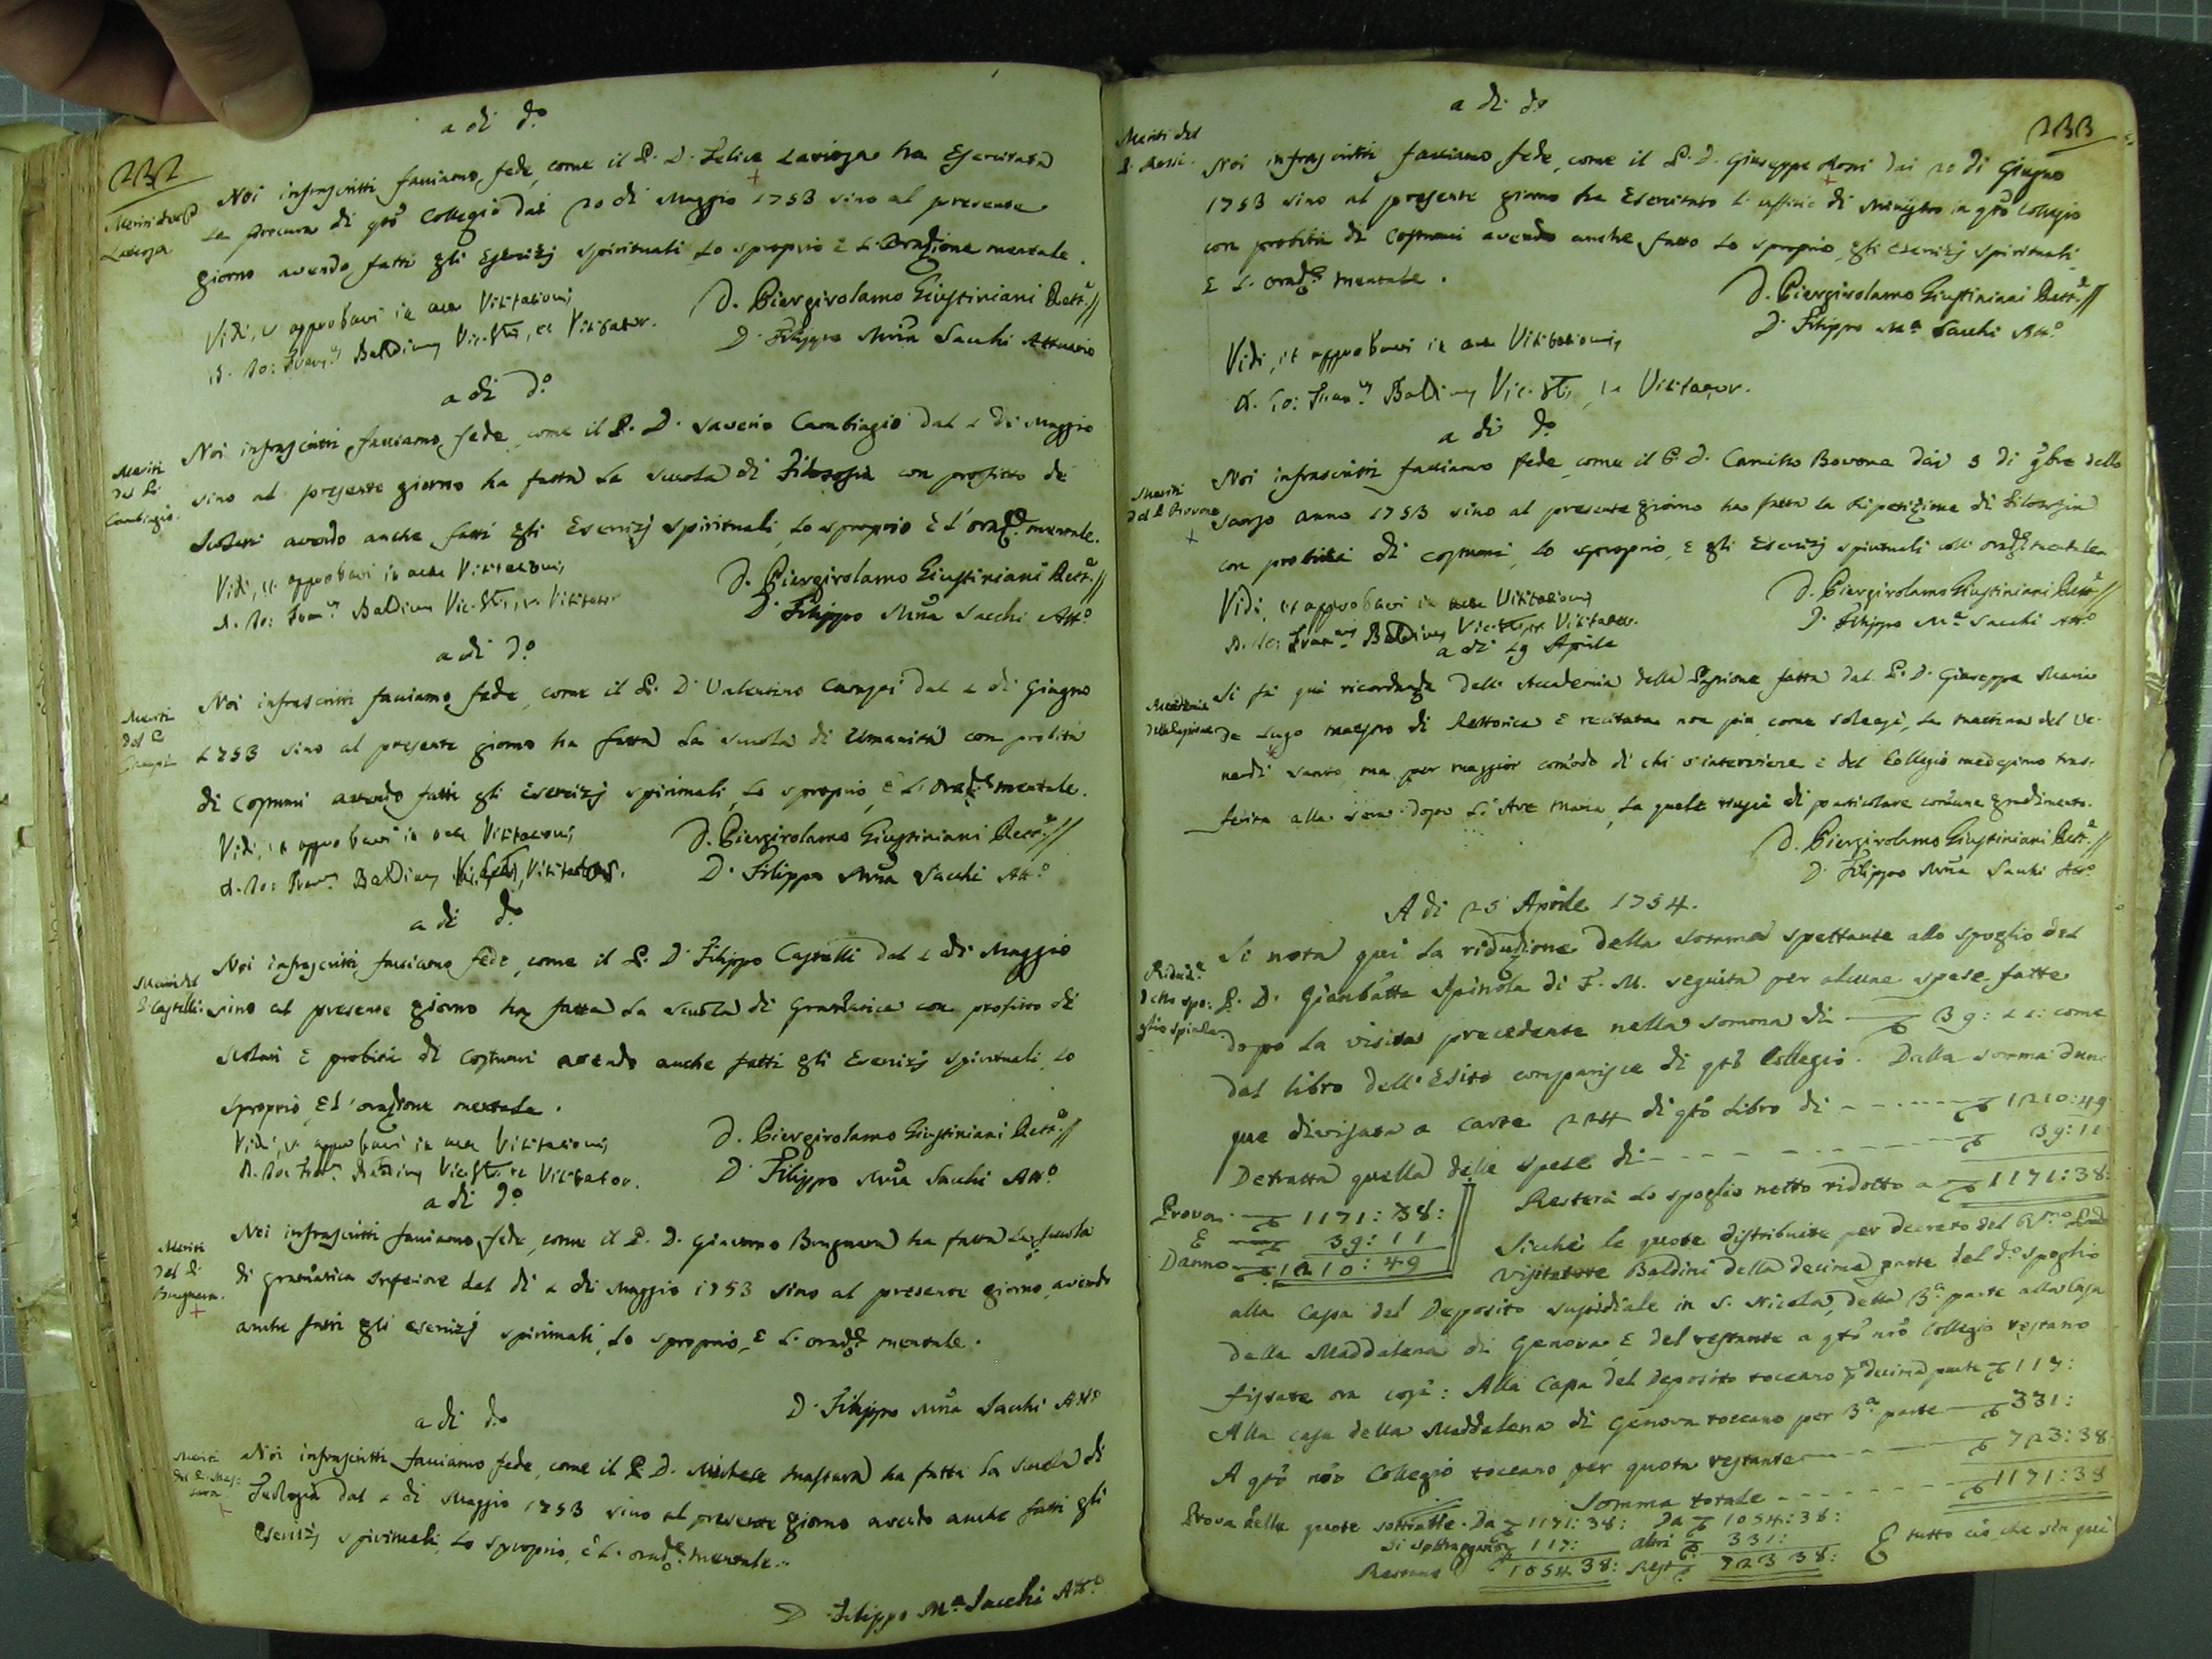 232
a di d.o
Meriti del P. Laviosa
Noi infrascritti facciamo fede, come il P. D. Felice Laviosa ha esercitata
la procura di q.to Collegio dai 20 di Maggio 1753 sino al presente
giorno avendo fatti gli esercizj spirituali lo sproprio e l'orazione mentale.
Vidi, et approbavi in actu Visitationis
D. Jo: Fran.us Baldinus Vic. Glis, et Visitator.
D. Piergirolamo Giustiniani Rett.e
D. Filippo Mria Sacchi Attuario
a di d.o
Meriti del P. Cambiagio
Noi infrascritti facciamo fede, come il P. D. Saverio Cambiagio dal 1 di Maggio
sino al presente giorno ha fatta la scuola di Filosofia con profitto de
scolari avendo anche fatti gli Esercizj spirituali, lo sproprio e l'oraz.e mentale.
Vidi, et approbavi in actu Visitationis
D. Jo: Fran.us Baldinus Vic. Glis, et Visitator
D. Piergirolamo Giustiniani Rett.e
D. Filippo Mria Sacchi Att.o
a di d.o
Meriti del P. Campi
Noi infrascritti facciamo fede, come il P. D. Valentino Campi dal 1 di Giugno
1753 sino al presente giorno ha fatta la scuola di Umanità con probità
di costumi avendo fatti gli esercizj spirituali, lo sproprio, e l'oraz.e mentale.
Vidi, et approbavi in actu Visitationis
D. Jo: Fran.us Baldinus Vic. Glis, Visitator.
D. Piergirolamo Giustiniani Rett.e
D. Filippo Mria Sacchi Att.o
a di d.o
Meriti del P. Castelli
Noi infrascritti facciamo fede, come il P. D. Filippo Castelli dal 1 di Maggio
sino al presente giorno ha fatta la scuola di Gramatica con profitto di
scolari e probità di costumi avendo anche fatti gli Esercizj spirituali, lo
sproprio, e l'orazione mentale.
Vidi, et approbavi in actu Visitationis
D. Jo: Fran.us Baldinus Vic. Glis et Visitator.
D. Piergirolamo Giustiniani Rett.e
D. Filippo Mria Sacchi Att.o
a di d.o
Meriti del P. Brugnara
Noi infrascritti facciamo fede, come il P. D. Giacomo Brugnara ha fatta la scuola
di gramatica inferiore dal di 1 di Maggio 1753 sino al presente giorno, avendo
anche fatti gli esercizj spirituali, lo sproprio, e l'oraz.e mentale.
D. Filippo Mria Sacchi Att.o
a di d.o
Noi infrascritti facciamo fede, come il P. D. Michele ha fatta la scuola di
Teologia dal 1 di Maggio 1753 sino al presente giorno avendo anche fatti gli
esercizj spirituali, lo sproprio, e l'oraz.e mentale.
D. Filippo M.a Sacchi Att.o
233
a di d.o
Meriti del P. Rossi.
Noi infrascritti facciamo fede, come il P. D. Giuseppe Rossi dai 20 di Giugno
1753 sino al presente giorno ha esercitato l'ufficio di Ministro in q.to Collegio
con probità di costumi avendo anche fatto lo sproprio, gli esercizj spirituali
e l'oraz.e mentale.
D. Piergirolamo Giustiniani Rett.e
D. Filippo M.a Sacchi Att.o
Vidi, et approbavi in actu Visitationis
D. Jo: Fran.us Baldinus Vic. Glis, et Visitator.
a di d.o
Meriti del P. Bovone
Noi infrascritti facciamo fede, come il P. D. Camillo Bovone dai 3 di 9bre dello
scorso anno 1753 sino al presente giorno ha fatta la Ripetizione di Filosofia
con probità di costumi, lo sproprio, e gli esercizj spirituali coll'oraz.e mentale
Vidi, et approbavi in actu Visitationis
D. Jo: Fran.us Baldinus Vic. Glis, et Visitator.
D. Piergirolamo Giustiniani Rett.e
D. Filippo M.a Sacchi Att.o
a di 19 Aprile
Accademia della Passione
Si fà qui ricordanza dell'Accademia della Passione fatta dal P. D. Giuseppe Maria
de Lugo maestro di Rettorica e recitata non più, come soleasi, la mattina del Ve-
nerdì santo, ma per maggior comodo di chi v'interviene e del Collegio medesimo tras-
ferita alla sera dopo l'Ave Maria, la quale riuscì di particolare comune gradimento.
D. Piergirolamo Giustiniani Rett.e
D. Filippo Mria Sacchi Att.o
A di 25 Aprile 1754.
Riduz.e dello spoglio Spinola
Si nota qui la riduzione della somma spettante allo spoglio del
P. D. Gianbatta Spinola di F. M. seguita per alcune spese fatte
dopo la visita precedente nella somma di 39: 11: come
dal libro dell'Esito comparisce di q.to Collegio. Dalla somma dun-
que divisata a carte 224 di q.to Libro di 1210:49
Detratta quella delle spese di 39:11
Resterà lo spoglio netto ridotto a 1171:38:
Prova 1171:38:
E 39:11
Danno 1210:49
Sicchè le quote distribuite per decreto del R.mo Pad.
Visitatore Baldini della decima parte del d.o spoglio
alla Cassa del Deposito sussidiale in S. Nicola, della 3.a parte alla Casa
della Maddalena di Genova e del restante a q.to nro Collegio restano
fissate ora così: Alla Cassa del Deposito toccano p. decima parte 117:
Alla casa della Maddalena di Genova toccano per 3.a parte 331:
A q.to nro Collegio toccano per quota restante 723:38
Somma totale 1171:38
Prova delle quote sottratte. Da 1171:38: Da 1054:38:
Si sottraggano 117: altri 331:
Restano 1054 38: Rest. 723 38:
E tutto ciò che sin qui